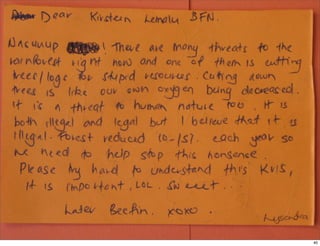 Dear Kirstein Lemalu BFN.
Nasuup ! There are many threats to the
rainforest right now and one of them is cutting
trees/logs for stupid resources. Cuting down
trees is like our own oxygen being decreased.
It is a threat to human nature too. It is
both illegal and legal but I believe that it is
Illegal. Forest reduced 10-15%. each year so
we need to help stop this nonsense.
Please try hard to understand this Kris,
it is important, LOL. Sweet...
Later Beckin. xoxo.
Lysandra